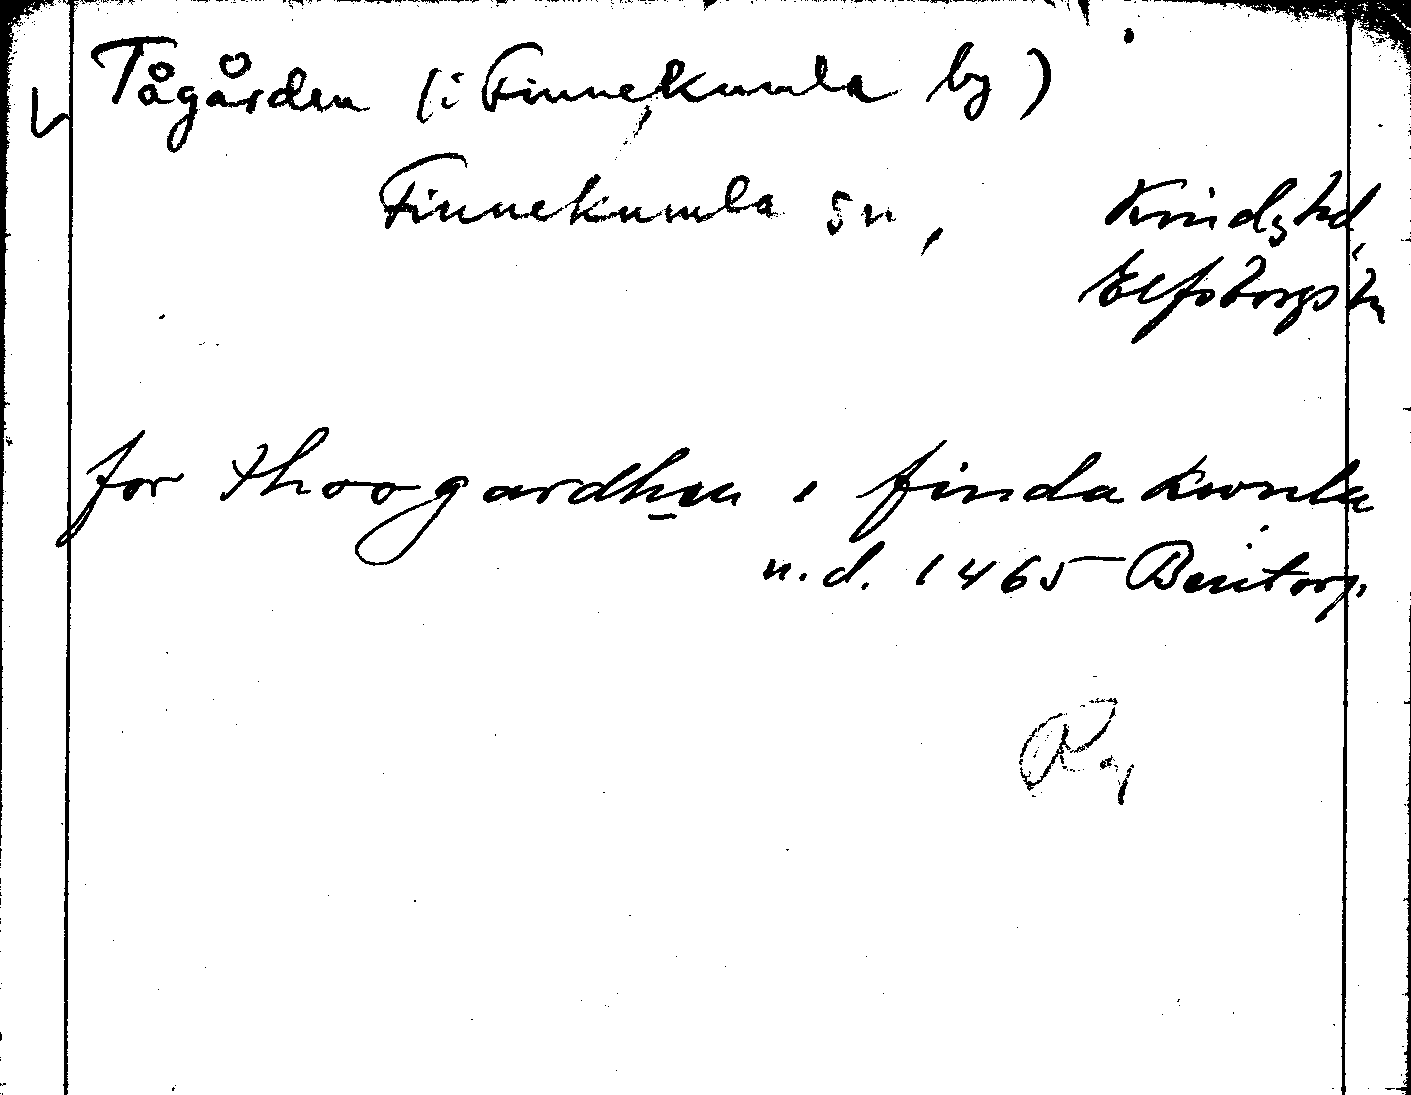 Tågården (i Finnekumla by)
Finnekumla sn, Kinds hd,
Elfsborgs ln
for thoogardhen i findakumla
n.d. 1465 Bentorp.